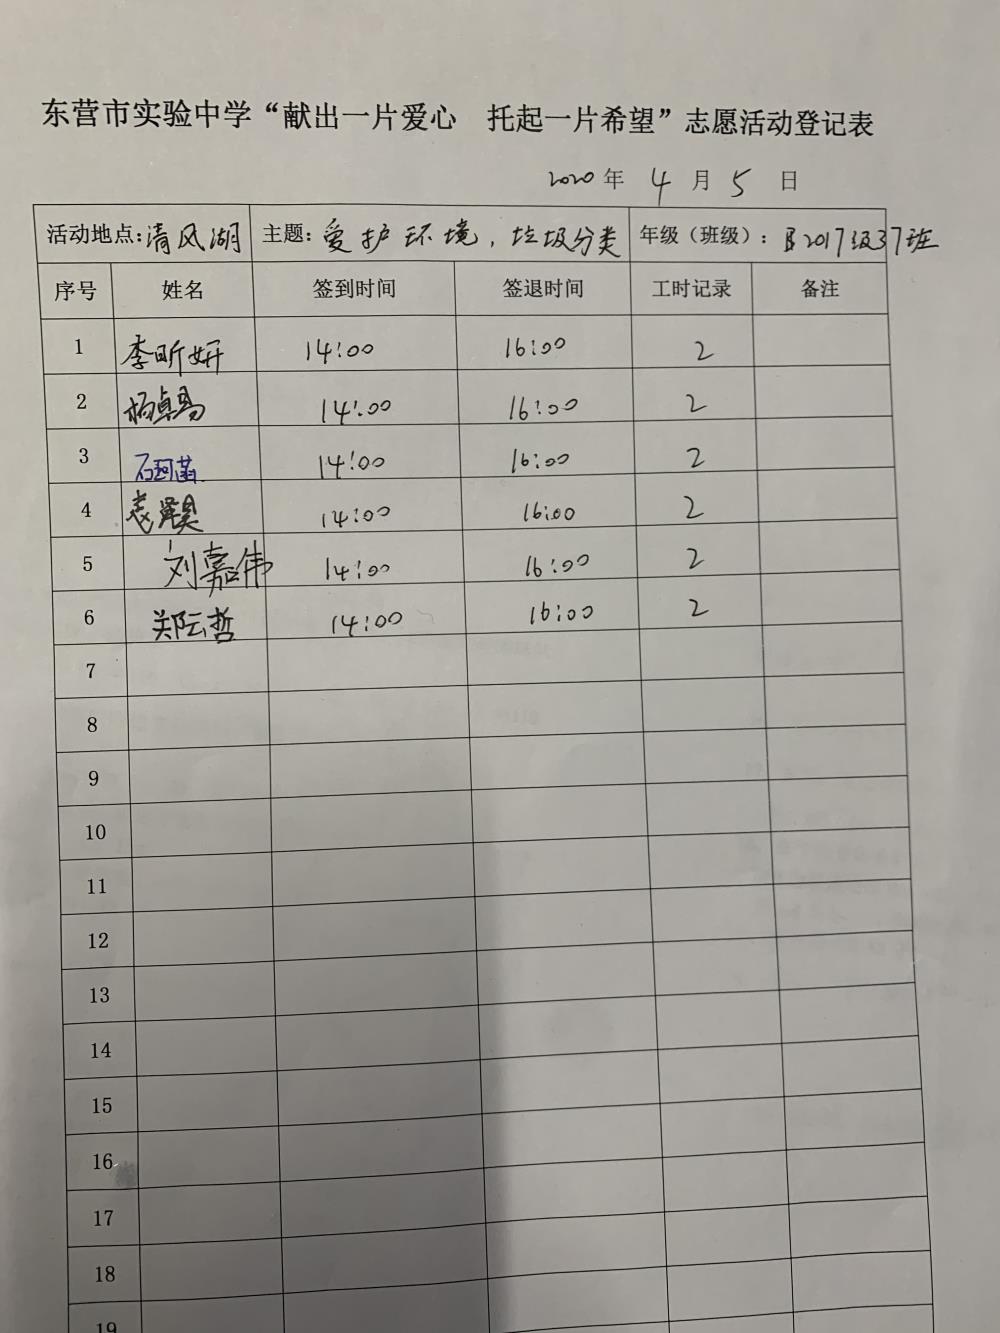 东营市实验中学“献出一片爱心 托起一片希望”志愿活动登记表
2020年 4月 5日
活动地点:清风湖 主题:爱护环境,垃圾分类 年级(班级):2017级37班
序号 姓名 签到时间 签退时间 工时记录 备注
1 李昕妍 14:00 16:00 2
2 14:00 16:00 2
3 石珂菡 14:00 16:00 2
4 袁 14:00 16:00 2
5 刘嘉伟 14:00 16:00 2
6 郑云哲 14:00 16:00 2
7
8
9
10
11
12
13
14
15
16
17
18
19